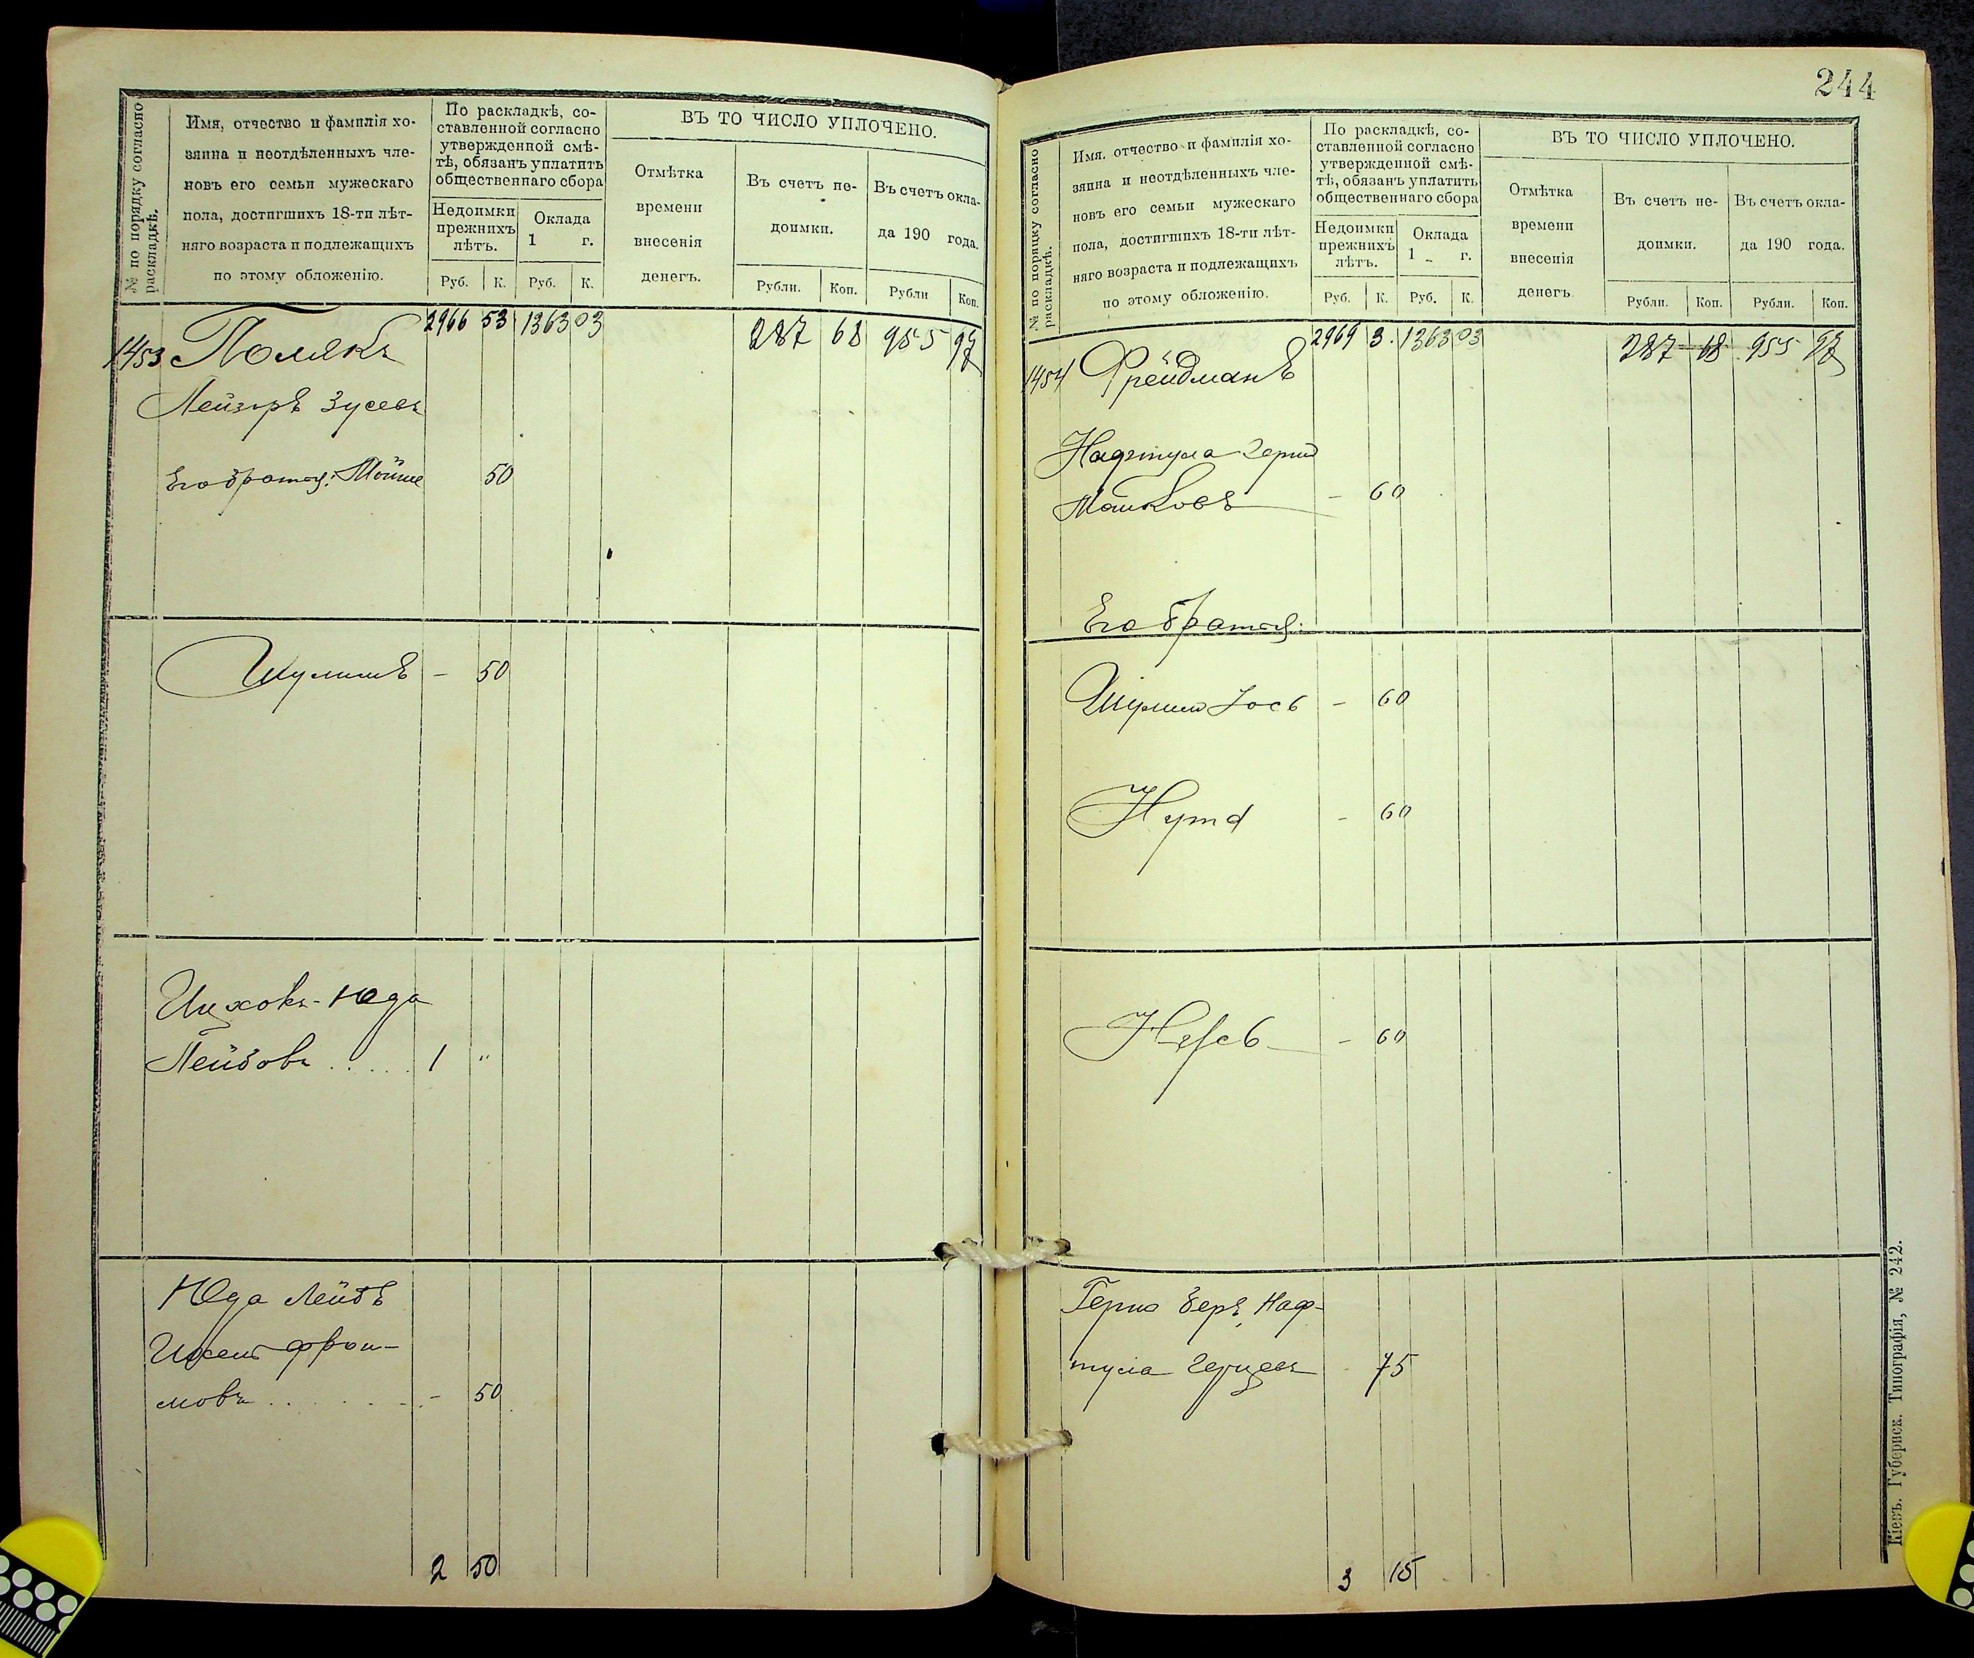 № по порядку согласно раскладкѣ.
Имя, отчество и фамилія хо-
зяина и неотдѣленныхъ чле-
новъ его семьи мужескаго
пола, достигшихъ 18-ти лѣт-
няго возраста и подлежащихъ
по этому обложенію.
По раскладкѣ, со-
ставленной согласно
утвержденной смѣ-
тѣ, обязанъ уплатить
общественнаго сбора
Недоимки
прежнихъ
лѣтъ.
Оклада
1 г.
Руб. К. Руб. К.
ВЪ ТО ЧИСЛО УПЛОЧЕНО.
Отмѣтка
времени
внесенія
денегъ.
Въ счетъ не-
доимки.
Въ счетъ окла-
да 190 года.
Рубли. Коп. Рубли Коп.
2966 53 1363 03 287 68 955
1453 Полякъ
Лейзеръ Зусевъ
Его братья: Мойше 50
Шулимъ - 50
Ицховъ-Юда
Лейбовъ ..... 1 "
Юда Лейбъ
мовъ ....... - 50
2 50
244
№ по порядку согласно раскладкѣ.
Имя, отчество и фамилія хо-
зяина и неотдѣленныхъ чле-
новъ его семьи мужескаго
пола, достигшихъ 18-ти лѣт-
няго возраста и подлежащихъ
по этому обложенію.
По раскладкѣ, со-
ставленной согласно
утвержденной смѣ-
тѣ, обязанъ уплатить
общественнаго сбора
Недоимки
прежнихъ
лѣтъ.
Оклада
1 г.
Руб. К. Руб. К.
ВЪ ТО ЧИСЛО УПЛОЧЕНО.
Отмѣтка
времени
внесенія
денегъ
Въ счетъ не-
доимки.
Въ счетъ окла-
да 190 года.
Рубли. Коп. Рубли. Коп.
2969 3 1363 03 287 68 955
1454 Фрейдманъ
Нафтула Герш
Машковъ - 60
Его братья:
Шулим Іось - 60
Нута - 60
Герш Беръ, Наф-
тула 75
3 15
Кіевъ. Губернск. Типографія, № 242.